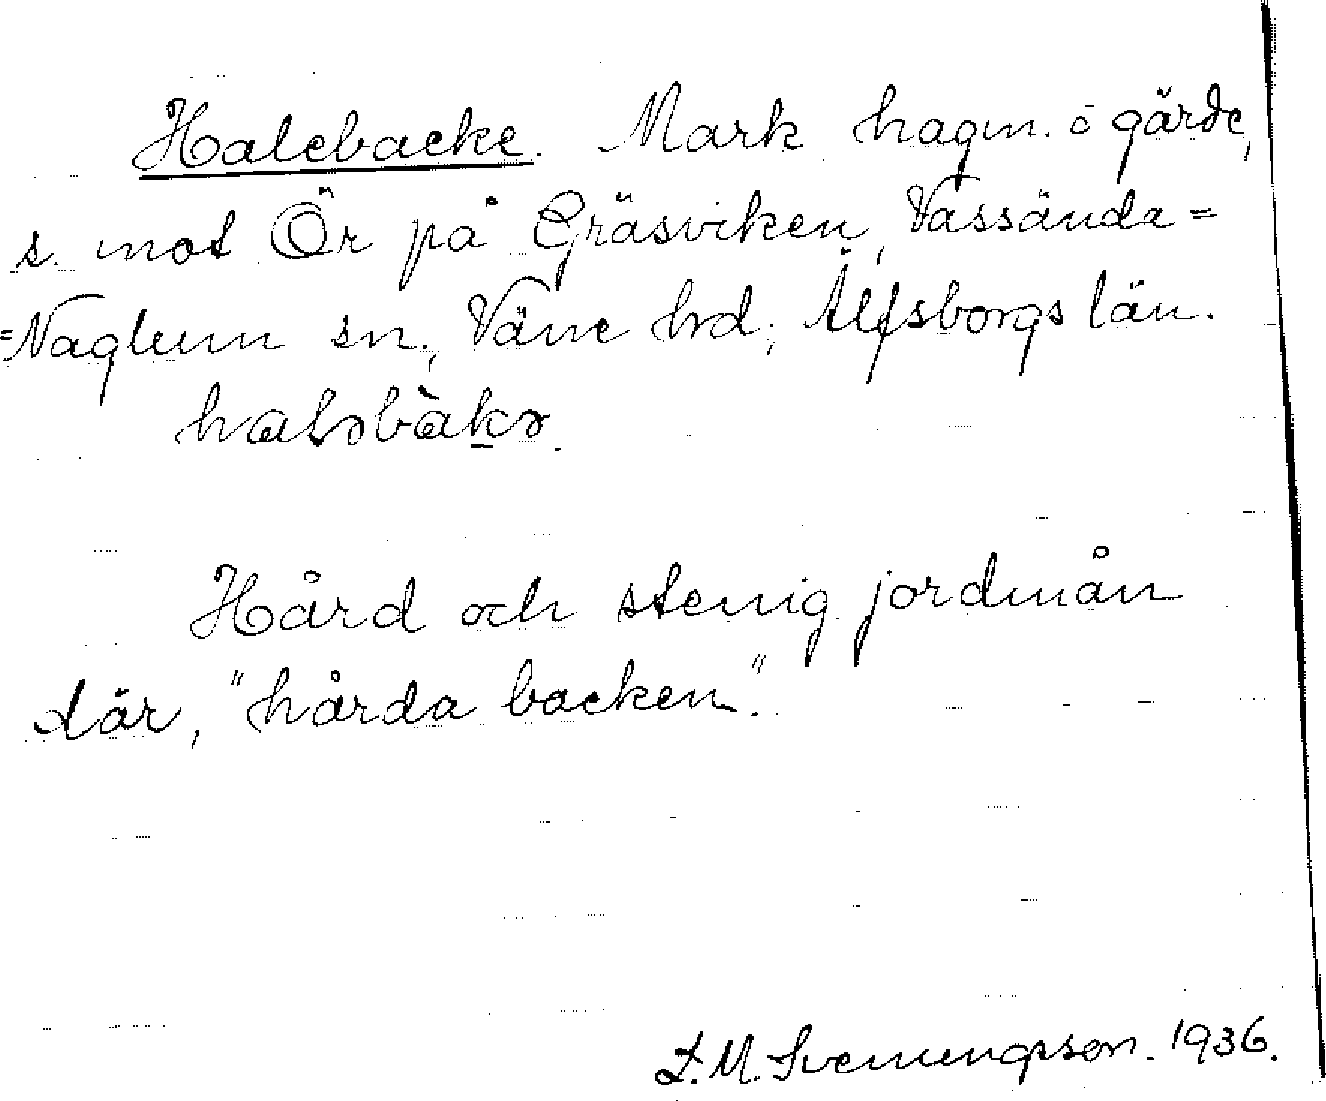 Halebacke. Mark hagm. o gärde,
s. mot Ör på Gräsviken, Vassända=
=Naglum sn., Väne hd, Älfsborgs län.
Hård och stenig jordmån
där, "hårda backen".
L. M. Svenungsson. 1936.